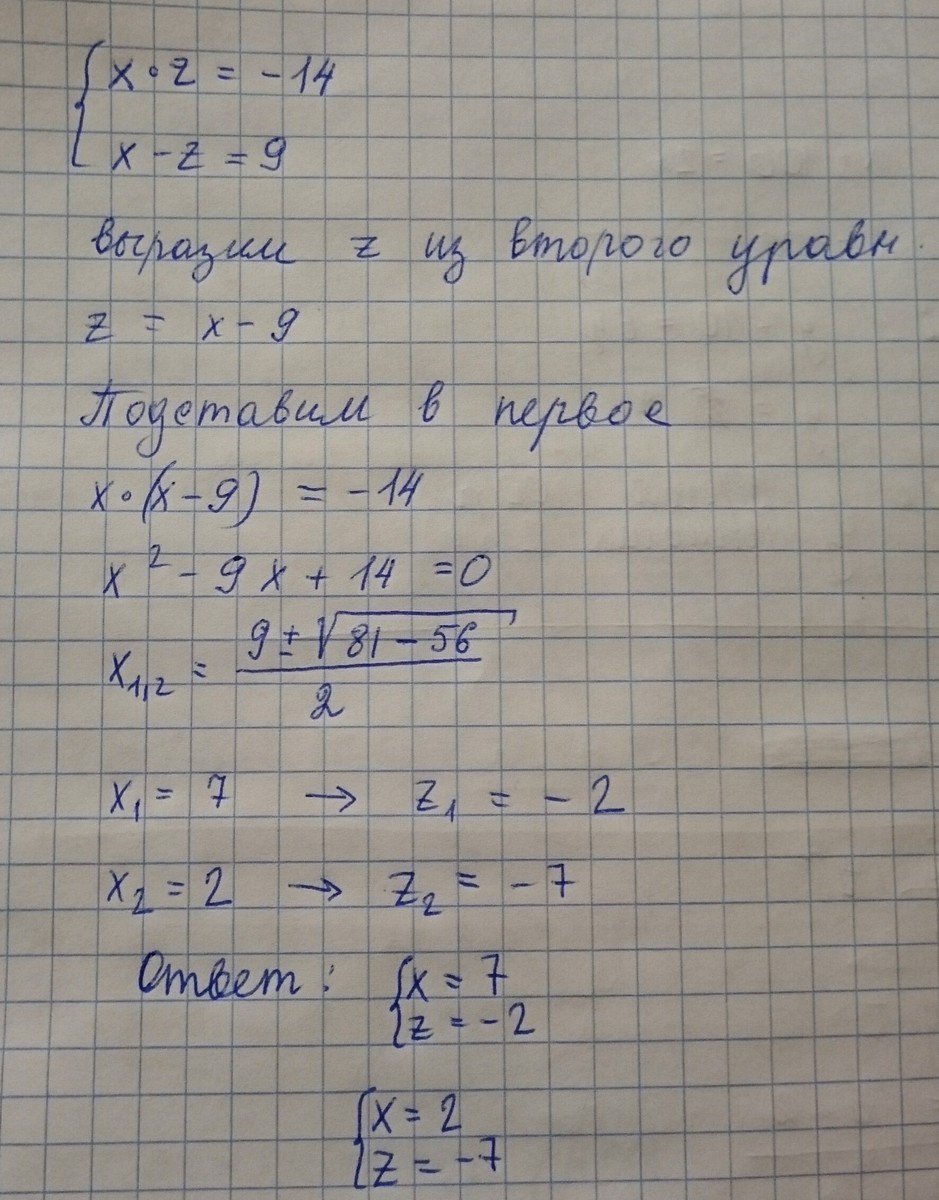 { x • z = -14
x - z = 9
выразим z из второго уравн.
z = x - 9
Подставим в первое
x • (x - 9) = -14
x² - 9x + 14 = 0
x₁,₂ = (9 ± √(81 - 56)) / 2
x₁ = 7 → z₁ = -2
x₂ = 2 → z₂ = -7
Ответ: { x = 7
z = -2
{ x = 2
z = -7